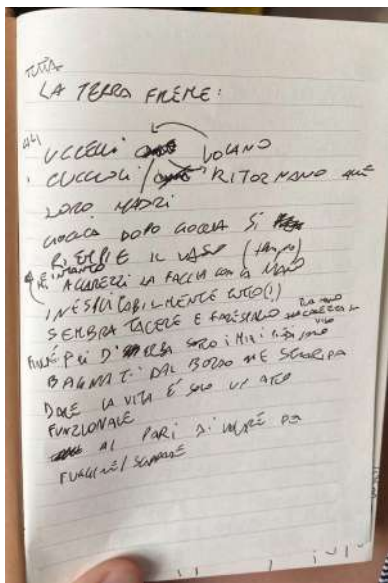 TUTTA
LA TERRA FREME:
GLI UCCELLI VOLANO
I CUCCIOLI RITORNANO ALLE
LORO MADRI
GOCCIA DOPO GOCCIA SI
RIEMPIE IL VASO (tempo)
E INTANTO
MI ACCAREZZI LA FACCIA CON LA MANO
INESPLICABILMENTE TUTTO (!)
SEMBRA TACERE E
FINCHÉ PER D' ERBA SONO I MIEI
BAGNATI: DAL BORDO ME
DOVE LA VITA È SOLO UN ATTO
FUNZIONALE
AL PARI DI VOLARE PER
FUGGIRE/SCAPPARE